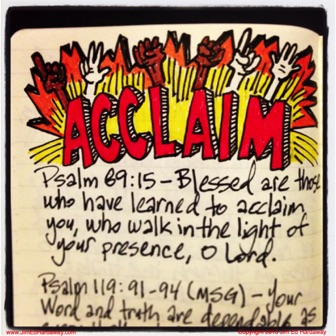 ACCLAIM
Psalm 89:15 - Blessed are those
who have learned to acclaim
you, who walk in the light of
your presence, O Lord.
Psalm 119:91-94 (MSG) - Your
Word and truth are dependable as
www.JimEdHardaway.com
Copyright 2010 Jim Ed Hardaway